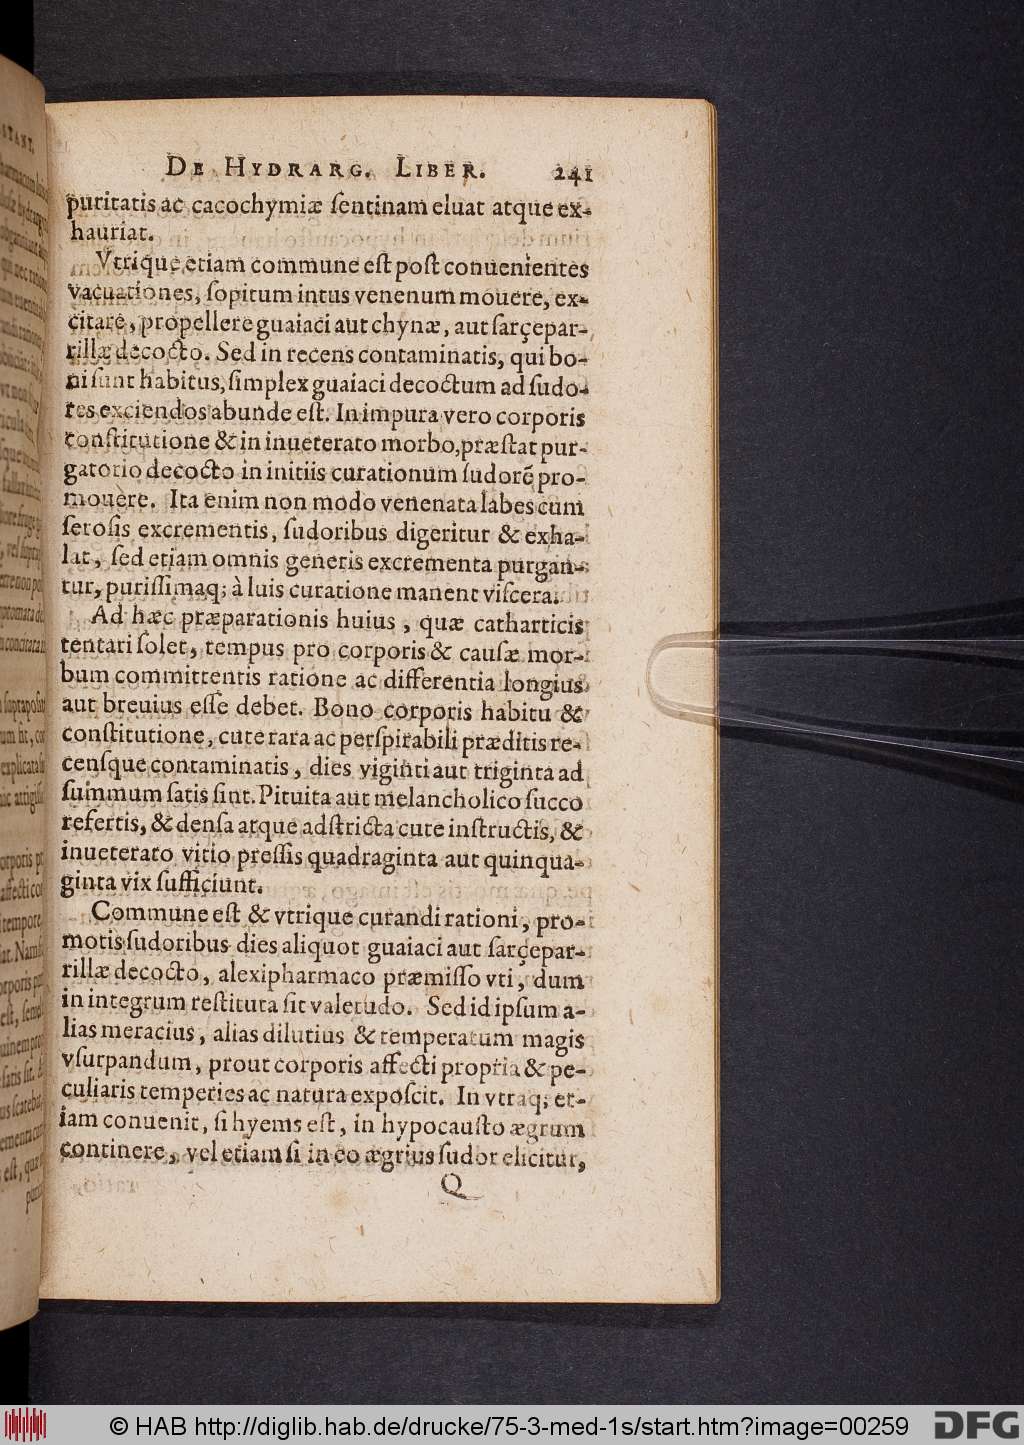 DE HYDRARG. LIBER. 241
puritatis ac cacochymiæ ſentinam eluat atque ex-
hauriat.
Vtrique etiam commune eſt poſt conuenientes
vacuationes, ſopitum intus venenum mouere, ex-
citare, propellere guaiaci aut chynæ, aut ſarçepar-
rillæ decocto. Sed in recens contaminatis, qui bo-
ni ſunt habitus, ſimplex guaiaci decoctum ad ſudo-
res exciendos abunde eſt. In impura vero corporis
conſtitutione & in inueterato morbo, præſtat pur-
gatorio decocto in initiis curationum ſudorẽ pro-
mouere. Ita enim non modo venenata labes cum
ſeroſis excrementis, ſudoribus digeritur & exha-
lat, ſed etiam omnis generis excrementa purgan-
tur, puriſſimaq; à luis curatione manent viſcera.
Ad hæc præparationis huius, quæ catharticis
tentari ſolet, tempus pro corporis & cauſæ mor-
bum committentis ratione ac differentia longius
aut breuius eſſe debet. Bono corporis habitu &
conſtitutione, cute rara ac perſpirabili præditis re-
cenſque contaminatis, dies viginti aut triginta ad
ſummum ſatis ſint. Pituita aut melancholico ſucco
refertis, & denſa atque adſtricta cute inſtructis, &
inueterato vitio preſſis quadraginta aut quinqua-
ginta vix ſufficiunt.
Commune eſt & vtrique curandi rationi, pro-
motis ſudoribus dies aliquot guaiaci aut ſarçepar-
rillæ decocto, alexipharmaco præmiſſo vti, dum
in integrum reſtituta ſit valetudo. Sed id ipſum a-
lias meracius, alias dilutius & temperatum magis
vſurpandum, prout corporis affecti propria & pe-
culiaris temperies ac natura expoſcit. In vtraq; et-
iam conuenit, ſi hyems eſt, in hypocauſto ægrum
continere, vel etiam ſi in eo ægrius ſudor elicitur,
Q
© HAB http://diglib.hab.de/drucke/75-3-med-1s/start.htm?image=00259
DFG